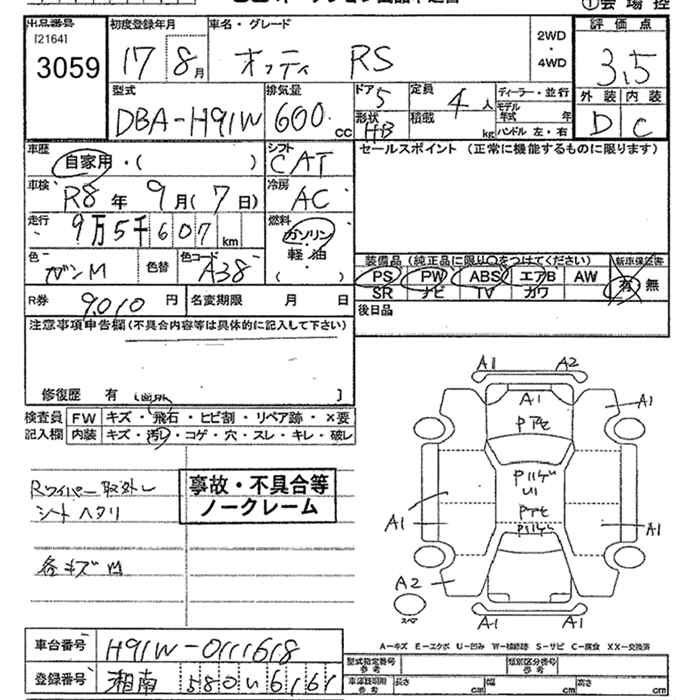 出品番号 初度登録年月 車名・グレード 評価点
[2164] 2WD
3059 17 8月 オッティ RS ・ 3.5
4WD
型式 排気量 ドア 5 定員 4人 ディーラー・並行 外装 内装
DBA-H91W 600 cc 形状 HB 積載 kg モデル年式 年 D C
ハンドル 左・右
車歴 シフト セールスポイント (正常に機能するものに限ります)
自家用・( ) CAT
車検 R8年 9月(7日) 冷房 AC
走行 9万5千607km 燃料 ガソリン・軽油・( )
色 ガンM 色替 色コード A38 装備品 (純正品に限り○をつけてください) 新車保証書
PS PW ABS エアB AW 有・無
SR ナビ TV カワ
R券 9,010円 名変期限 月 日 後日品
注意事項申告欄(不具合内容等は具体的に記入して下さい)
修復歴 有
検査員 FW キズ・飛石・ヒビ割・リペア跡・×要
記入欄 内装 キズ・汚レ・コゲ・穴・スレ・キレ・破レ
A1 A2
A1 A1
Pアセ
Rワイパー取外し 事故・不具合等 PハゲU1
シートヘタリ ノークレーム Pアセ
A1 Pハゲ A1
各キズM
A2
A1 A1
A-キズ E-エクボ U-凹み W-補修跡 S-サビ C-腐食 XX-交換済
車台番号 H91W-0111618 型式指定番号 参考 類別区分番号 参考
登録番号 湘南 580 い 6161 車庫証明用 参考 長さ cm 幅 cm 高さ cm